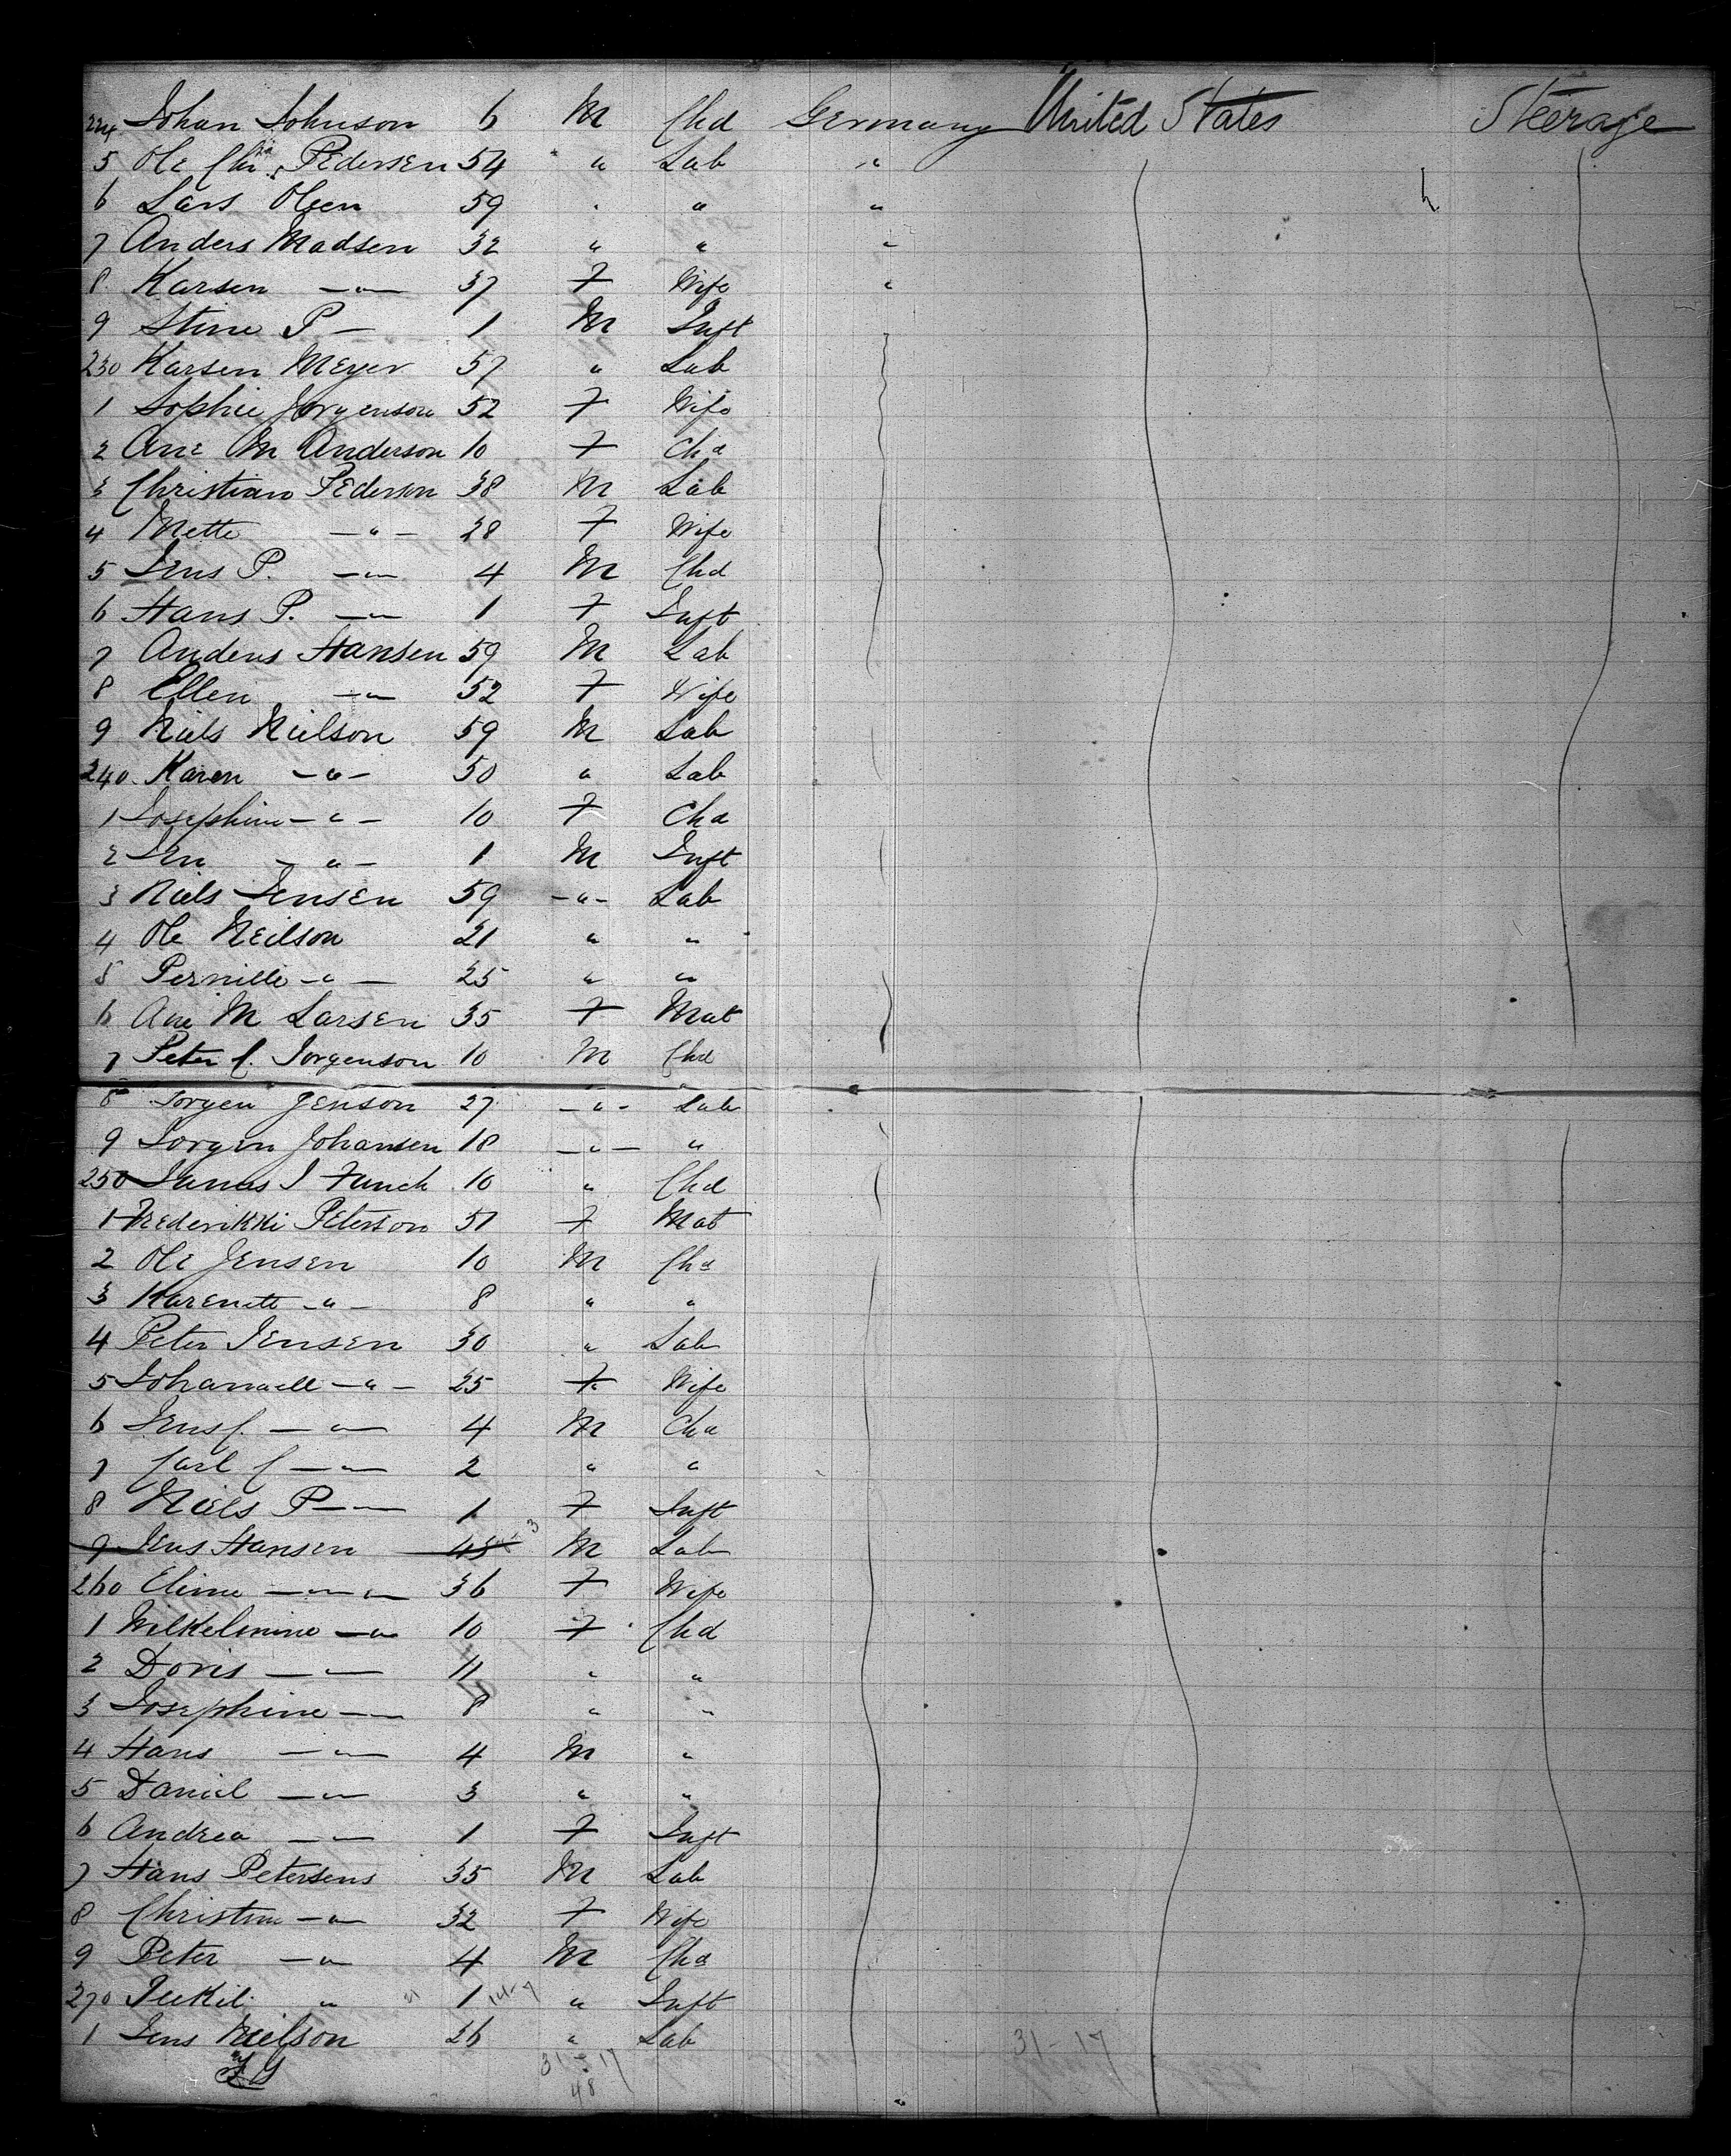 224 Johan Johnson 6 M Chd Germany United States Steerage
5 Ole Chr. Pedersen 54 " Lab "
6 Lars Olsen 59 " " "
7 Anders Madsen 32 " " "
8 Karsen — " — 37 F Wife "
9 Stine P — 1 M Inft
230 Karsen Meyer 57 " Lab
1 Sophie Jorgenson 52 F Wife
2 Ane M Anderson 10 F Chd
3 Christian Pederson 38 M Lab
4 Mette — " — 28 F Wife
5 Jens P. — " — 4 M Chd
6 Hans P. — " — 1 F Inft
7 Anders Hansen 59 M Lab
8 Ellen — " — 52 F Wife
9 Niels Nielson 59 M Lab
240 Karen — " — 50 " Lab
1 Josephine — " — 10 F Chd
2 Jen — " — 1 M Inft
3 Niels Jensen 59 — " — Lab
4 Ole Neilson 21 " "
5 Pernille — " — 25 " "
6 Ane M Larsen 35 F Mat
7 Peter C. Jorgenson 10 M Chd
8 Jorgen Jenson 27 — " — Lab
9 Jorgen Johansen 18 — " — "
250 J Funck 10 " Chd
1 Frederikki Peterson 51 F Mat
2 Ole Jensen 10 M Chd
3 Karenette — " — 8 " "
4 Peter Jensen 30 " Lab
5 — " — 25 F Wife
6 Jens C. — " — 4 M Chd
7 Carl C — " — 2 " "
8 Niels P — " — 1 F Inft
9 Jens Hansen 45 M Lab
260 Eline — " — 36 F Wife
1 Wilkelmine — " — 10 F Chd
2 Doris — " — 11 " "
3 Josephine — " — 8 " "
4 Hans — " — 4 M "
5 Daniel — " — 3 " "
6 Andrea — " — 1 F Inft
7 Hans Petersens 35 M Lab
8 Christine — " — 32 F Wife
9 Peter — " — 4 M Chd
270 " 1 " Inft
1 Jens Nielson 26 " Lab
31-17 31-17
48